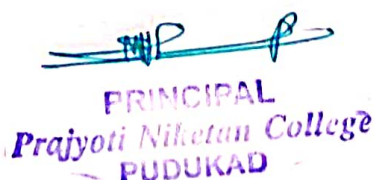 PRINCIPAL
Prajyoti Niketan College
PUDUKAD